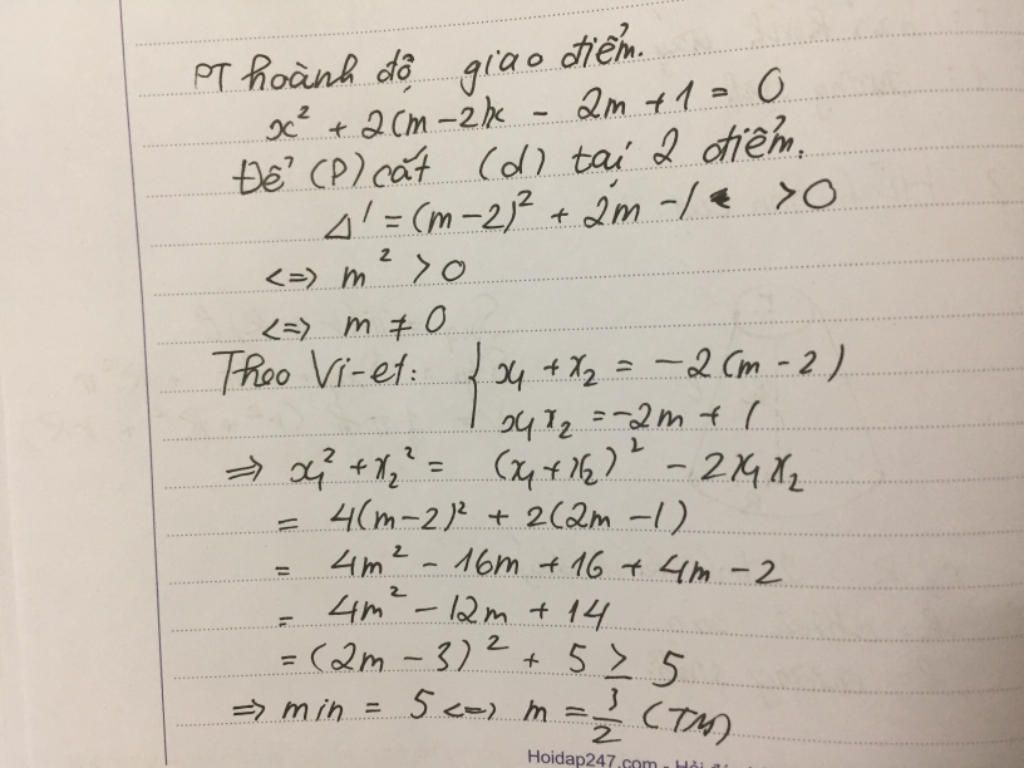 PT hoành độ giao điểm.
x² + 2(m-2)x - 2m + 1 = 0
Để (P) cắt (d) tại 2 điểm.
Δ' = (m-2)² + 2m - 1 > 0
<=> m² > 0
<=> m ≠ 0
Theo Vi-et: { x₁ + x₂ = -2(m-2)
x₁x₂ = -2m + 1
=> x₁² + x₂² = (x₁+x₂)² - 2x₁x₂
= 4(m-2)² + 2(2m-1)
= 4m² - 16m + 16 + 4m - 2
= 4m² - 12m + 14
= (2m-3)² + 5 ≥ 5
=> min = 5 <=> m = 3/2 (TM)
Hoidap247.com -